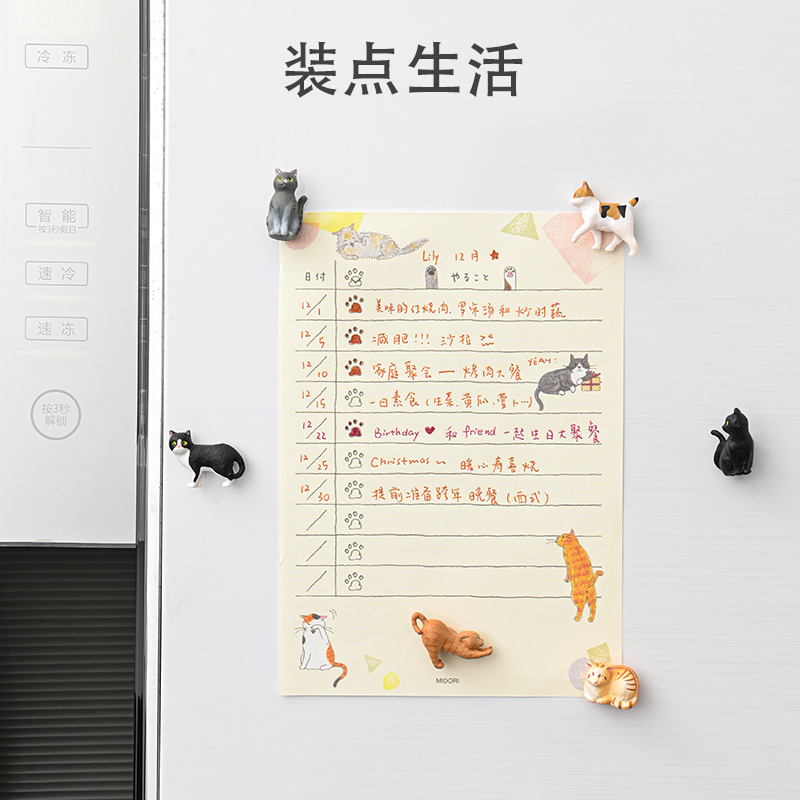 装点生活
冷冻
智能
按3秒假日
速冷
速冻
按3秒
解锁
Lily 12月
日付 やること
12/1 美味的红烧肉.罗宋汤和炒时蔬
12/5 减肥!!! 沙拉
12/10 家庭聚会 — 烤肉大餐 YEAH!
12/15 一日素食(生菜.黄瓜.萝卜…)
12/22 Birthday ♥ 和 friend 一起生日大聚餐
12/25 Christmas ~ 暖心寿喜烧
12/30 提前准备跨年晚餐(西式)
MIDORI